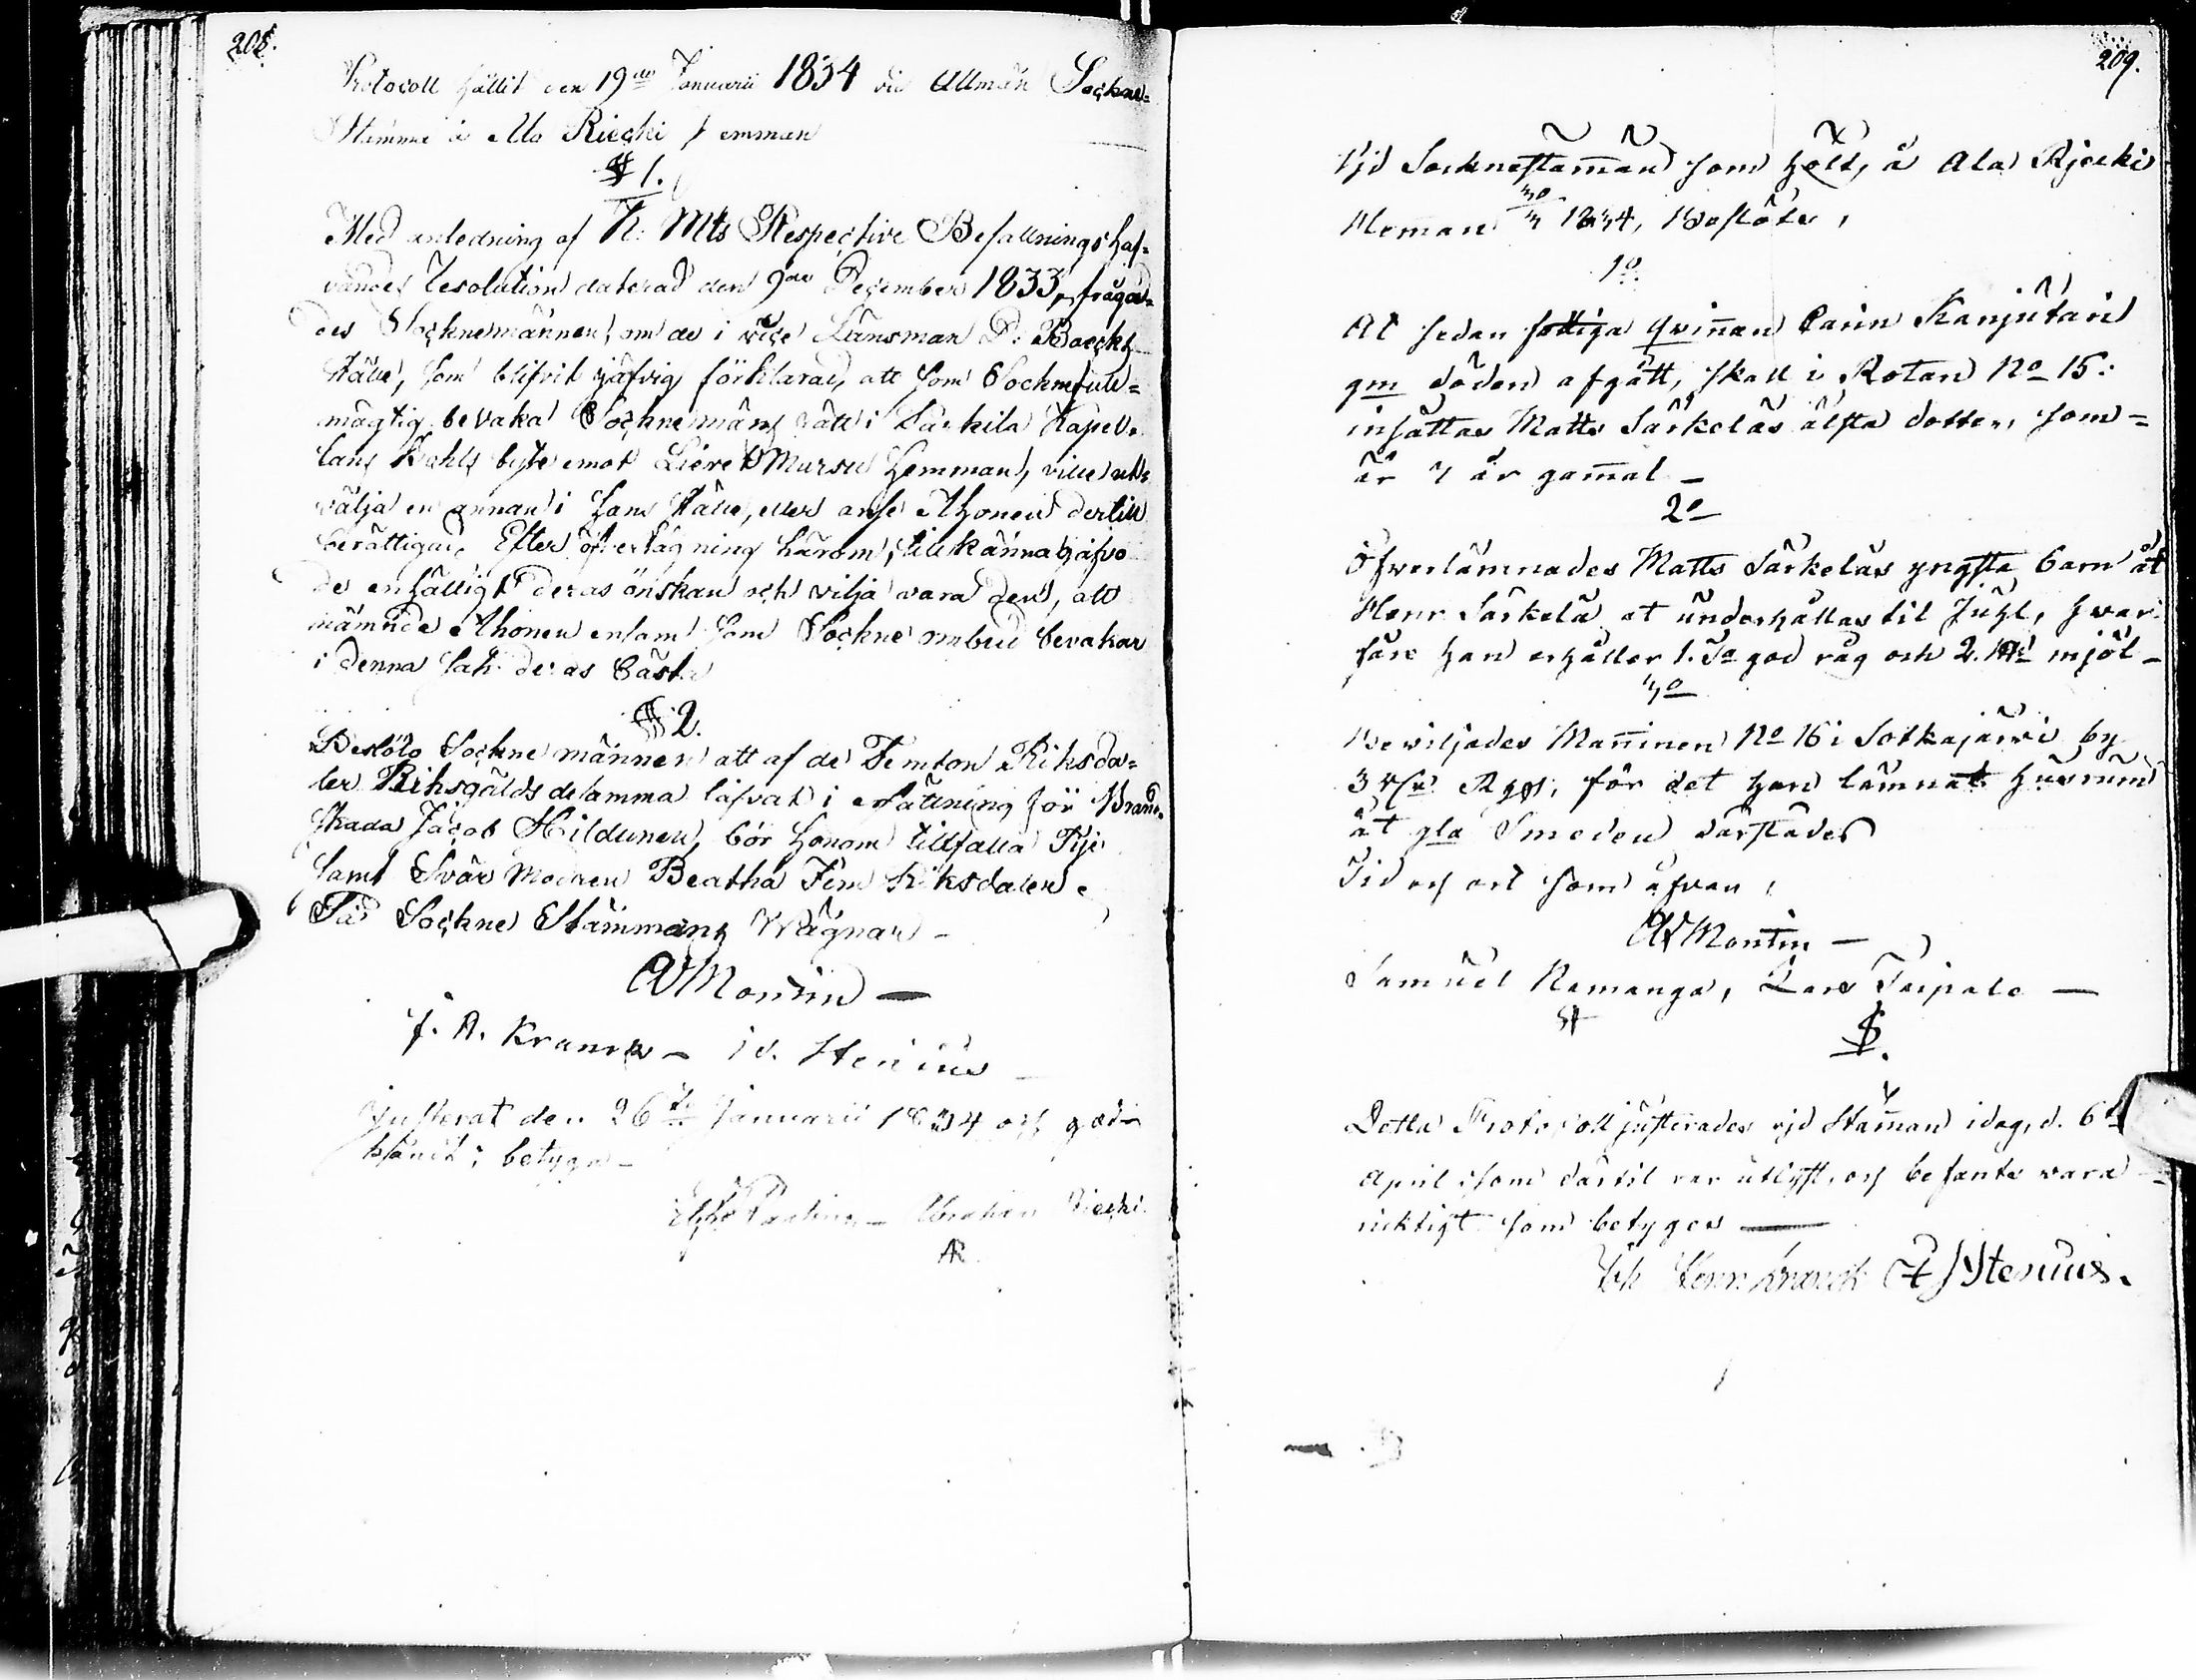 208.
Protocoll hållit den 19de Januarii 1834 vid Allmän Sockne=
Stämma å Ala Riecki hemman
§ 1.
Med anledning af K. Mts Respective Befallningshaf=
vandes Resolution daterad den 9de December 1833, frågad=
des Socknemännen, om de i vice Länsman P. Boeckz
ställe, som blifvit jäfvig förklarad, att som Sockne full=
mägtig bevaka Socknemäns rätt i Särkilä Kapel=
lans byte emot Mursu Hemman, ville ut=
välja en annan i hans ställe, eller anse Ahonen dertill
berättigad. Efter öfverlägning härom, tillkännagåfvo
de enhälligt deras önskan och vilja vara den, att
nämnde Ahonen ensam som Sockne ombud bevakar
i denna sak deras bästa
§ 2.
Beslöto Socknemännen att af de Femton Riksda=
ler Riksgälds desamma lofvat i ersättning för Brand=
skada Jacob Hildunen, bör honom tillfalla Tije
samt Svär Modren Beatha Fem Riksdaler.
På Sockne Stämmans Wägnar –
A V Montin —
J. A. Kranck – Is. Stenius
Justerat den 26te Januarii 1834 och god=
känd; betyga –
Abraham Riecki.
AR
209.
Vid Sockne stamman som hölt, å Ala Rjecki
Heman 30/3 1834, Beslöts,
1o.
At sedan fattiga qvinnan Carin Kanjutain
gm döden afgått, skall i Rotan No 15:
insättas Matts Särkeläs älsta dotter, som=
är 7 år gamal –
2o
Öfwerlämnades Matts Särkeläs yngsta barn åt
Henr Särkelä at underhållas til Juhl, hwar=
före han erhåller 1. Ta god råg och 2. mjöl –
3o
Bewiljades Manninen No 16 i Sotkajärwi by
3 Rgs; för det han lämnat husrum
åt gla Smeden därstädes
Tid och ort som åfvan,
A V Montin —
Samuel Ramanga, Lars Taipale —
Detta Protocoll justerades vid Staman idag, d. 6te
April som därtil var utlyst, och befants wara
ricktigt som betyges —
Joh Henr Kranck Is Stenius.